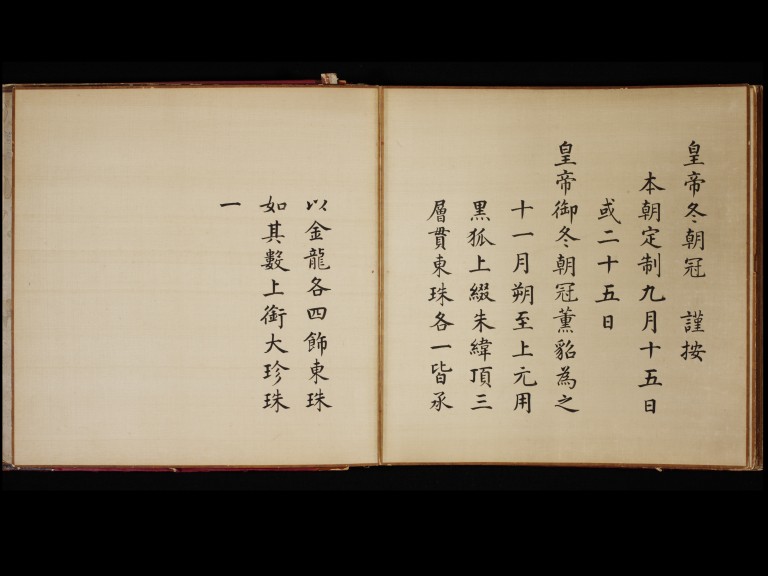 皇帝冬朝冠　謹按
本朝定制九月十五日
或二十五日
皇帝御冬朝冠薰貂為之
十一月朔至上元用
黑狐上綴朱緯頂三
層貫東珠各一皆承
以金龍各四飾東珠
如其數上銜大珍珠
一